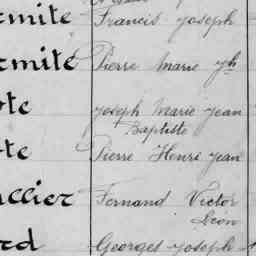 rmite Francis Joseph
rmite Pierre Marie
te Joseph Marie Jean
Baptiste
te Pierre Henri Jean
llier Fernand Victor
Léon
rd Georges Joseph